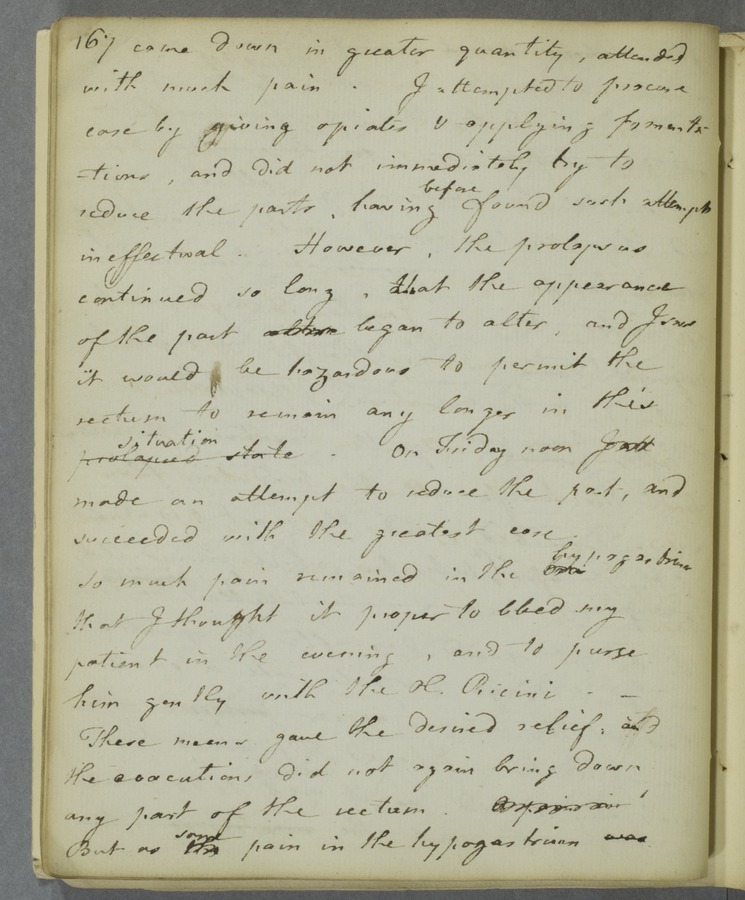 167 come down in greater quantity, attended
with much pain. I attempted to procure
ease by giving opiates & applying fomenta-
-tions, and did not immediately try to
before
reduce the parts, having found such attempts
ineffectual. However, the prolapsus
continued so long, that the appearance
of the part began to alter, and I saw
it would be hazardous to permit the
rectum to remain any longer in this
situation
prolapsed state. On Friday noon I
made an attempt to reduce the part, and
succeeded with the greatest ease.
hypogastrium
so much pain remained in the
that I thought it proper to bleed my
patient in the evening, and to purge
him gently with the Ol. Ricini. -
These means gave the desired relief, and
the evacuations did not again bring down
any part of the rectum.
some
But as pain in the hypogastrium was